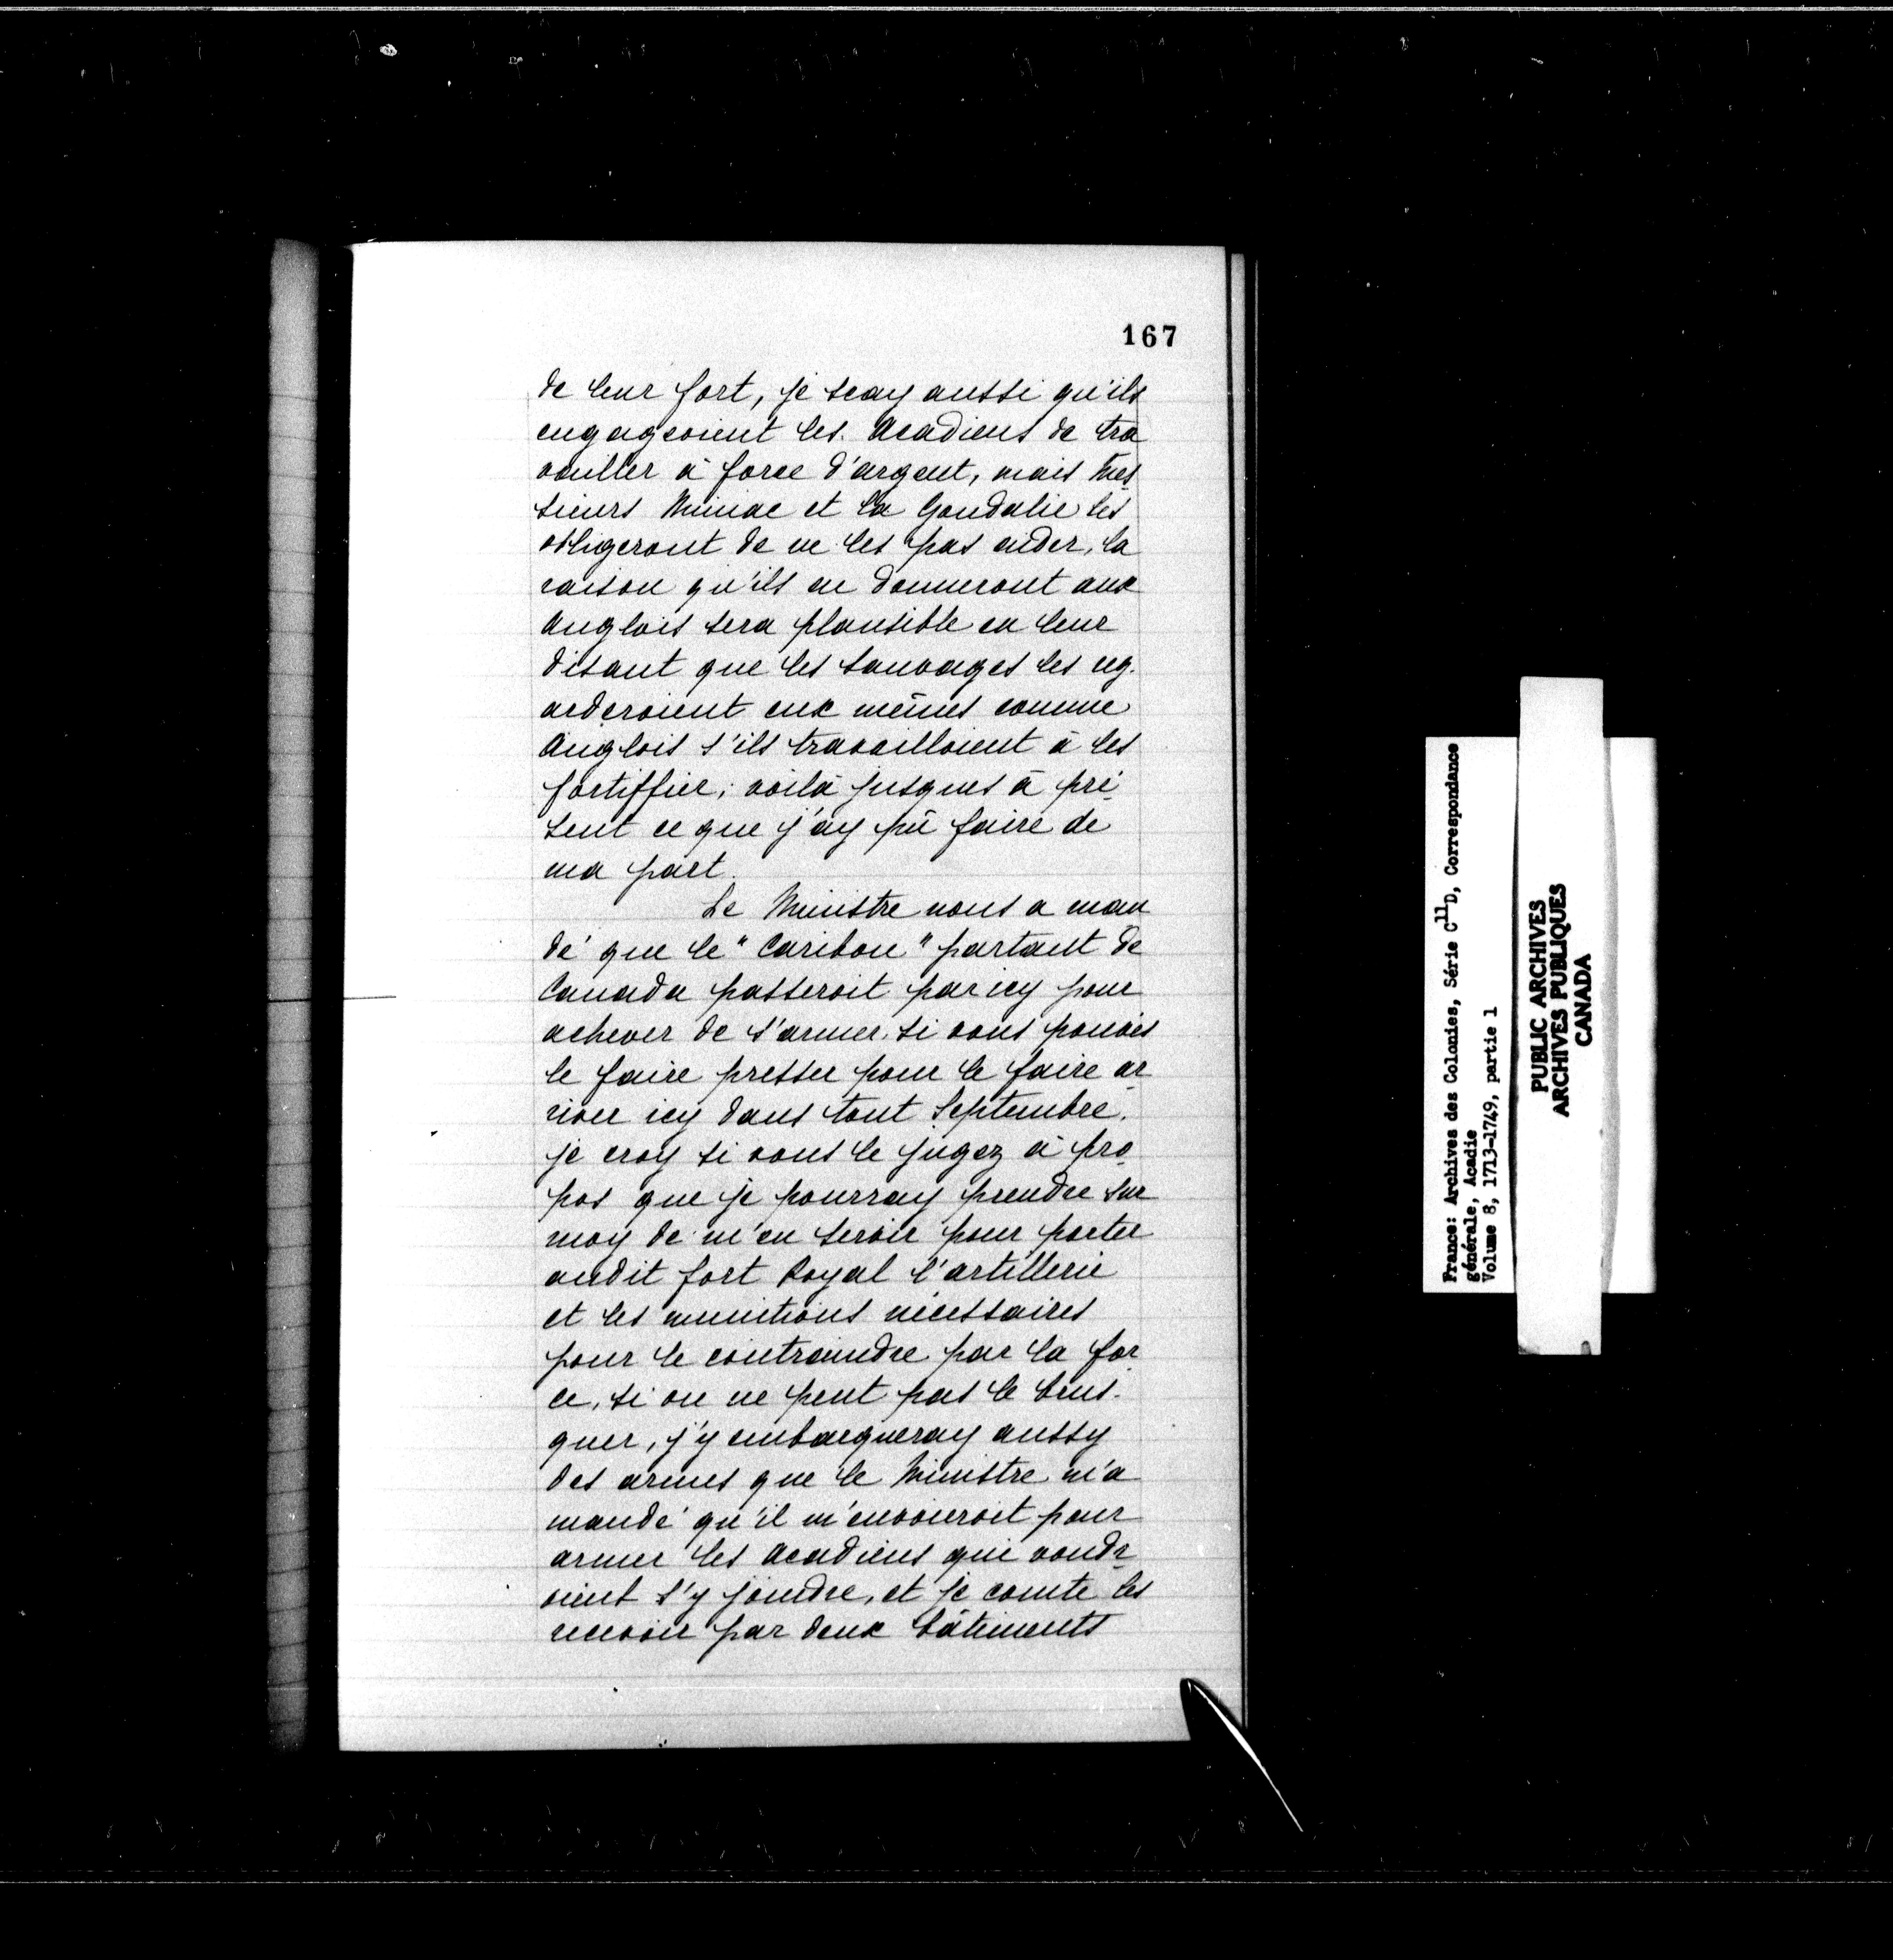 167
de leur fort, je scay aussi qu'ils
engageoient les Acadiens de tra
vailler à force d'argent, mais Mes
sieurs Miniac et la Goudalie les
obligeront de ne les pas aider, la
raison qu'ils en donneront aux
Anglois sera plausible en leur
disant que les sauvages les reg.
arderoient eux mêmes comme
Anglois s'ils travailloient à les
fortiffier; voilà jusques à pré
sent ce que j'ay pû faire de
ma part.
Le Ministre nous a man
dé que le "Caribou" partant de
Canada passeroit par icy pour
achever de s'armer. Si vous pouvés
le faire presser pour le faire ar
river icy dans tout Septembre.
je croy si vous le jugez à pro
pos que je pourray prendre sur
moy de m'en servir pour porter
audit fort Royal l'artillerie
et les munitions nécessaires
pour le contraindre par la for
ce, si on ne peut pas le brus-
quer, j'y embarqueray aussy
des armes que le Ministre m'a
mandé qu'il m'envoieroit pour
armer les Acadiens qui voudr
oient s'y joindre, et je comte les
recevoir par deux bâtiments
France: Archives des Colonies, Série C11D, Correspondance
générale, Acadie
Volume 8, 1713-1749, partie 1
PUBLIC ARCHIVES
ARCHIVES PUBLIQUES
CANADA